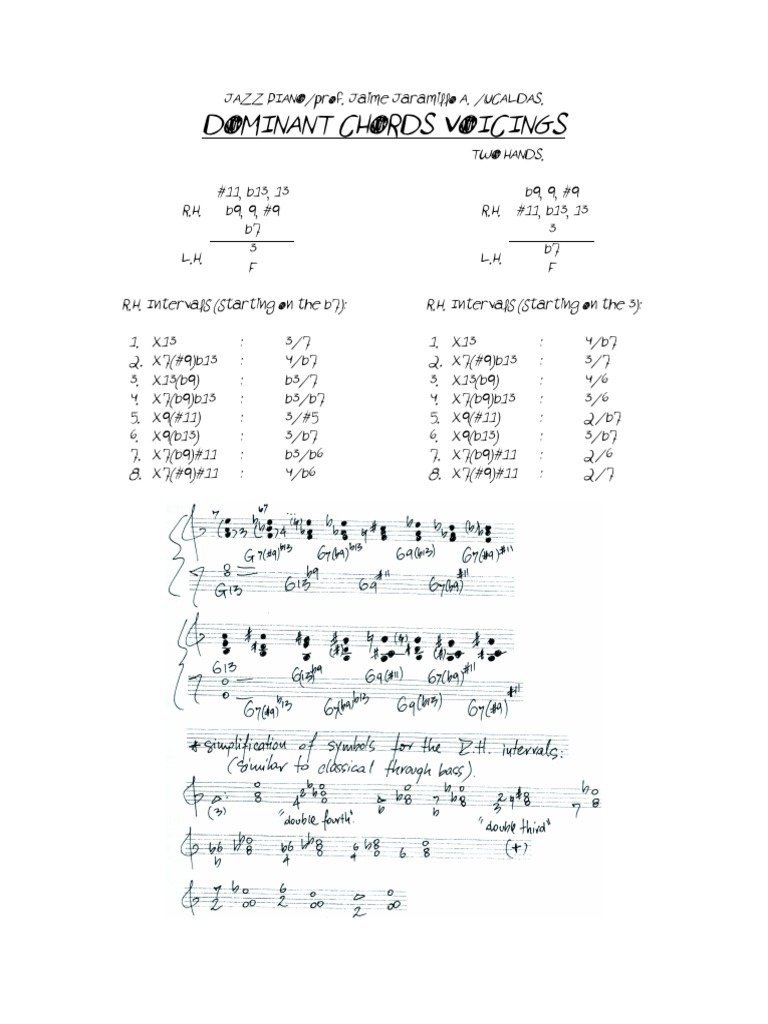 JAZZ PIANO/prof. Jaime Jaramillo A. /UCALDAS.
DOMINANT CHORDS VOICINGS
TWO HANDS.
#11, b13, 13
R.H. b9, 9, #9
b7
L.H. 3
F
b9, 9, #9
R.H. #11, b13, 13
3
L.H. b7
F
R.H. Intervals (Starting on the b7):
1. X13 : 3/7
2. X7(#9)b13 : 4/b7
3. X13(b9) : b3/7
4. X7(b9)b13 : b3/b7
5. X9(#11) : 3/#5
6. X9(b13) : 3/b7
7. X7(b9)#11 : b3/b6
8. X7(#9)#11 : 4/b6
R.H. Intervals (Starting on the 3):
1. X13 : 4/b7
2. X7(#9)b13 : 3/7
3. X13(b9) : 4/6
4. X7(b9)b13 : 3/6
5. X9(#11) : 2/b7
6. X9(b13) : 3/b7
7. X7(b9)#11 : 2/6
8. X7(#9)#11 : 2/7
G7(#9)b13 G7(b9)b13 G9(b13) G7(#9)#11
G13 G13b9 G9#11 G7(b9)#11
G13 G13b9 G9(#11) G7(b9)#11
G7(#9)b13 G7(b9)b13 G9(b13) G7(#9)#11
* simplification of symbols for the R.H. intervals:
(similar to classical through bass).
(3)
"double fourth" "double third"
(+)